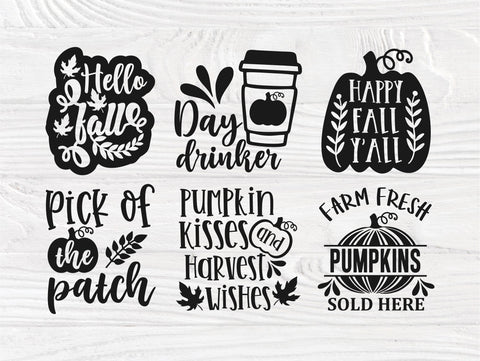 Hello
Fall
Day
drinker
HAPPY
FALL
Y'ALL
Pick of
the
patch
PUMPKIN
KISSES and
HARVEST
WISHES
FARM FRESH
PUMPKINS
SOLD HERE